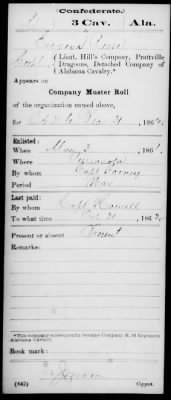 (Confederate.)
3 Cav. Ala.
(Lieut. Hill's Company, Prattville
Dragoons, Detached Company of
Alabama Cavalry.*
Appears on
Company Muster Roll
of the organization named above,
for Oct 31 to Dec 31, 186
Enlisted:
When May 2, 1861.
Where Pensacola
By whom Capt
Period War
Last paid:
By whom Capt Howell
To what time Oct 31, 186
Present or absent Present
Remarks:
*This company subsequently became Company H, 3d Regiment
Alabama Cavalry.
Book mark:
(642)
Copyist.